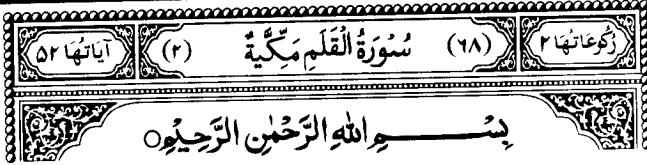 رُكُوعَاتُهَا ٢ (٦٨) سُوْرَةُ الْقَلَمِ مَكِّيَّةٌ (٢) اٰيَاتُهَا ٥٢
بِسْمِ اللهِ الرَّحْمٰنِ الرَّحِيْمِ○